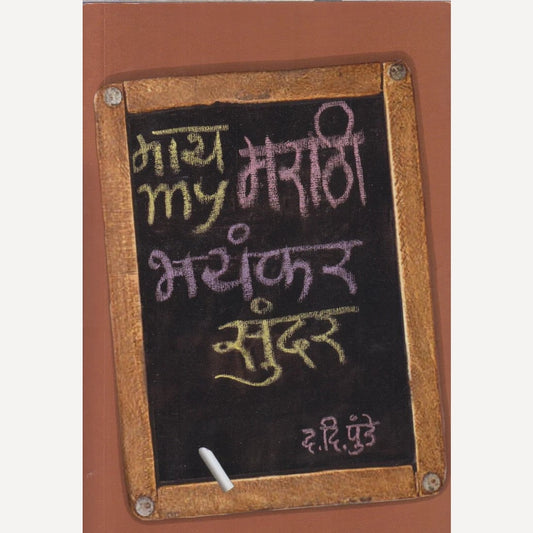 माय मराठी
my
भयंकर
सुंदर
द.दि.पुंडे